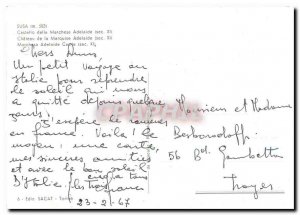 SUSA m. 503
Castello della Marchesa Adelaide (sec. XI)
Château de la Marquise Adelaide (sec. XI)
Marchesa Adelaide Castle (sec. XI)
Chers Amis
Un petit voyage en
Italie pour reprendre
le soleil qui nous
a quitté depuis quelques
jours!
J'enfère le
en France. Voila! Le
moyen: une carte,
mes sincères amitiés
et avec le bon soleil
d'Italie!
23-2-67
Monsieur et Madame
56 Bd. Gambetta
Troyes
6 - Ediz. SACAT - Torino